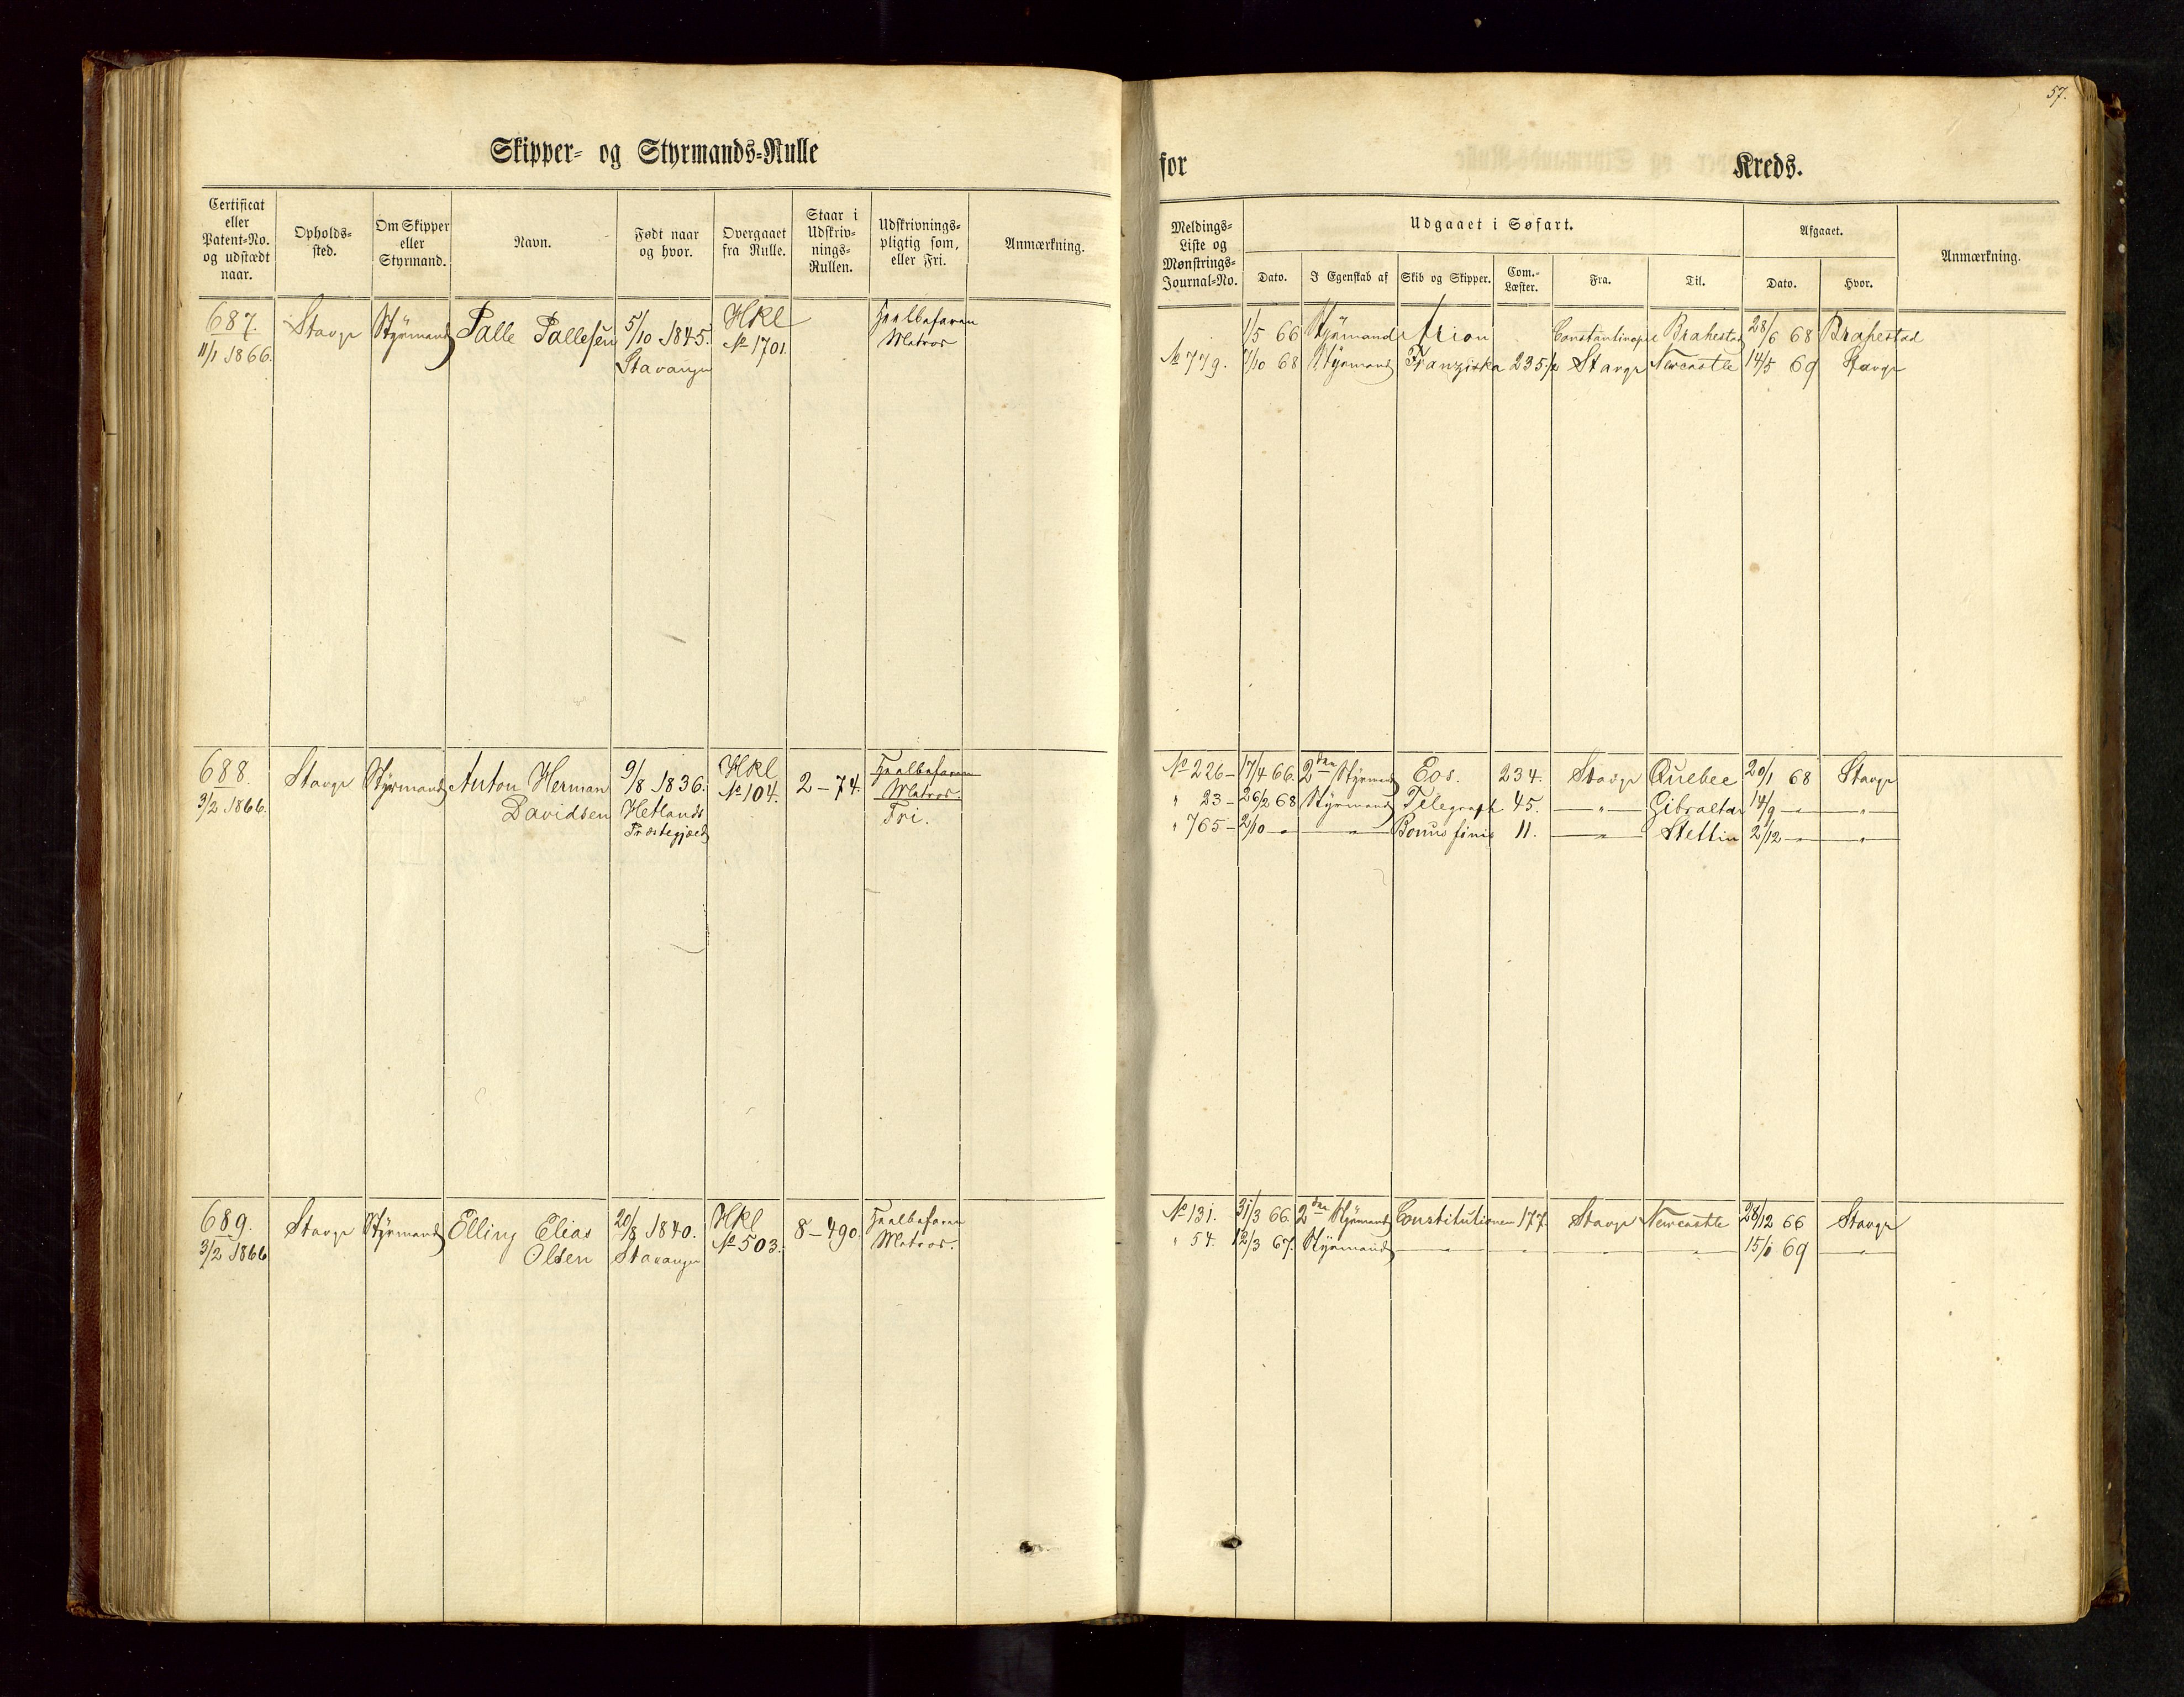 57.
Skipper- og Styrmands-Rulle
for Kreds.
Certificat eller Patent-No. og udstædt naar.
Opholds-sted.
Om Skipper eller Styrmand.
Navn.
Født naar og hvor.
Overgaaet fra Rulle.
Staar i Udskriv-nings-Rullen.
Udskrivnings-pligtig som, eller Fri.
Anmærkning.
Meldings-Liste og Mønstrings-Journal-No.
Udgaaet i Søfart.
Dato.
I Egenskab af
Skib og Skipper.
Com.-Læster.
Fra.
Til.
Afgaaet.
Dato.
Hvor.
Anmærkning.
687. Stavgr Styrmand Palle Pallesen 5/10 1845. Hkl Hrelbefaren
11/1 1866. Stavanger No 1701. Matros
1/5 66 Styrmand Arion Constantinopel Brahestad 28/6 68 Brahestad
No 779. 7/10 68 Styrmand Franziska 235 1/2 Stavgr Newcastle 14/5 69 Stavgr
688. Stavgr Styrmand Anton Herman 9/8 1836. Hkl 2-74. Heelbefaren
3/2 1866. Davidsen Hetlands No 104. Matros.
Præstegjæld Fri.
No 226 - 17/4 66. 2den Styrmand Eos. 234. Stavgr Quebec 20/1 68 Stavgr
" 23 - 26/2 68 Styrmand Telegraph 45. — " — Gibraltar 14/9 — "
" 765 - 2/10 — " — " — Bonus finis 11. — " — Stettin 2/12 — " — "
689. Stavgr Styrmand Elling Elias 20/8 1840. Hkl 8-490. Heelbefaren
3/2 1866 Olsen Stavanger No 503. Matros.
No 131. 31/3 66. 2den Styrmand Constitutionen 177. Stavgr Newcastle 28/12 66 Stavgr
" 54. 12/3 67. Styrmand — " — " — " — " — 15/1 69 — " —